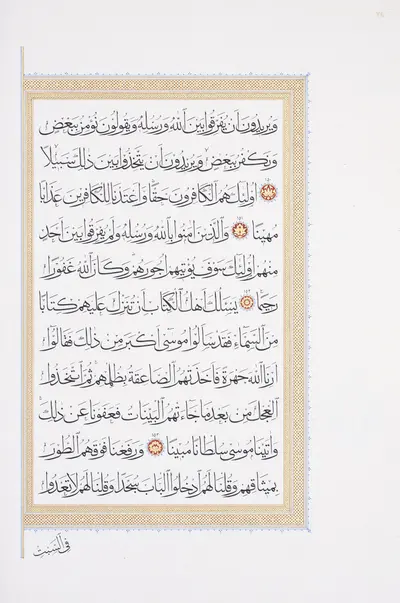 وَيُرِيدُونَ أَن يُفَرِّقُوا بَيْنَ ٱللَّهِ وَرُسُلِهِ وَيَقُولُونَ نُؤْمِنُ بِبَعْضٍ
وَنَكْفُرُ بِبَعْضٍ وَيُرِيدُونَ أَن يَتَّخِذُوا بَيْنَ ذَٰلِكَ سَبِيلًا
أُولَٰئِكَ هُمُ ٱلْكَافِرُونَ حَقًّا وَأَعْتَدْنَا لِلْكَافِرِينَ عَذَابًا
مُهِينًا وَٱلَّذِينَ آمَنُوا بِٱللَّهِ وَرُسُلِهِ وَلَمْ يُفَرِّقُوا بَيْنَ أَحَدٍ
مِنْهُمْ أُولَٰئِكَ سَوْفَ يُؤْتِيهِمْ أُجُورَهُمْ وَكَانَ ٱللَّهُ غَفُورًا
رَحِيمًا يَسْئَلُكَ أَهْلُ ٱلْكِتَابِ أَن تُنَزِّلَ عَلَيْهِمْ كِتَابًا
مِنَ ٱلسَّمَاءِ فَقَدْ سَأَلُوا مُوسَىٰ أَكْبَرَ مِن ذَٰلِكَ فَقَالُوا
أَرِنَا ٱللَّهَ جَهْرَةً فَأَخَذَتْهُمُ ٱلصَّاعِقَةُ بِظُلْمِهِمْ ثُمَّ ٱتَّخَذُوا
ٱلْعِجْلَ مِن بَعْدِ مَا جَاءَتْهُمُ ٱلْبَيِّنَاتُ فَعَفَوْنَا عَن ذَٰلِكَ
وَآتَيْنَا مُوسَىٰ سُلْطَانًا مُبِينًا وَرَفَعْنَا فَوْقَهُمُ ٱلطُّورَ
بِمِيثَاقِهِمْ وَقُلْنَا لَهُمُ ٱدْخُلُوا ٱلْبَابَ سُجَّدًا وَقُلْنَا لَهُمْ لَا تَعْدُوا
فِي ٱلسَّبْتِ